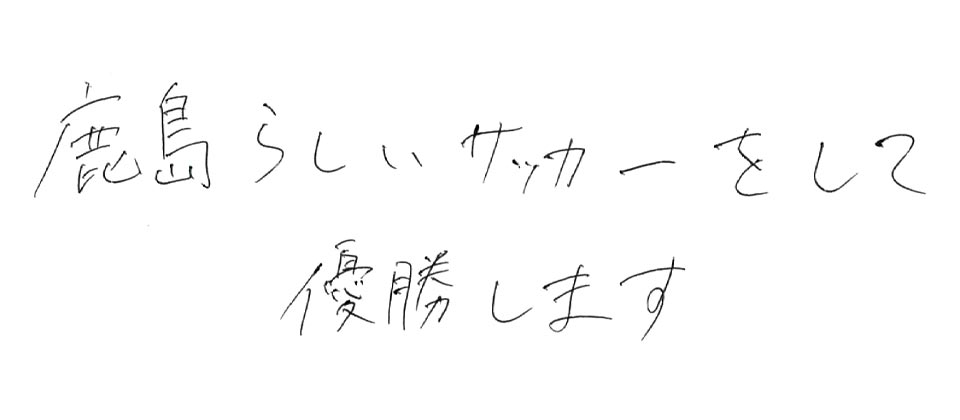 鹿島らしいサッカーをして
優勝します